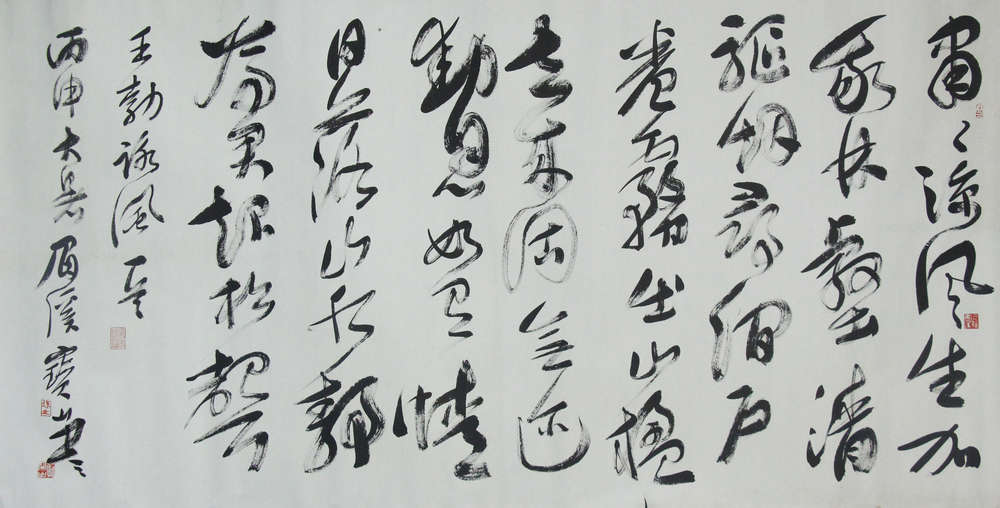 肅〻涼风生加
我林壑清
驅烟尋澗户
卷霧出山楹
去来固無迹
動息如有情
日落山水靜
為君起松聲
王勃詠風一首
丙申大暑眉溪寶